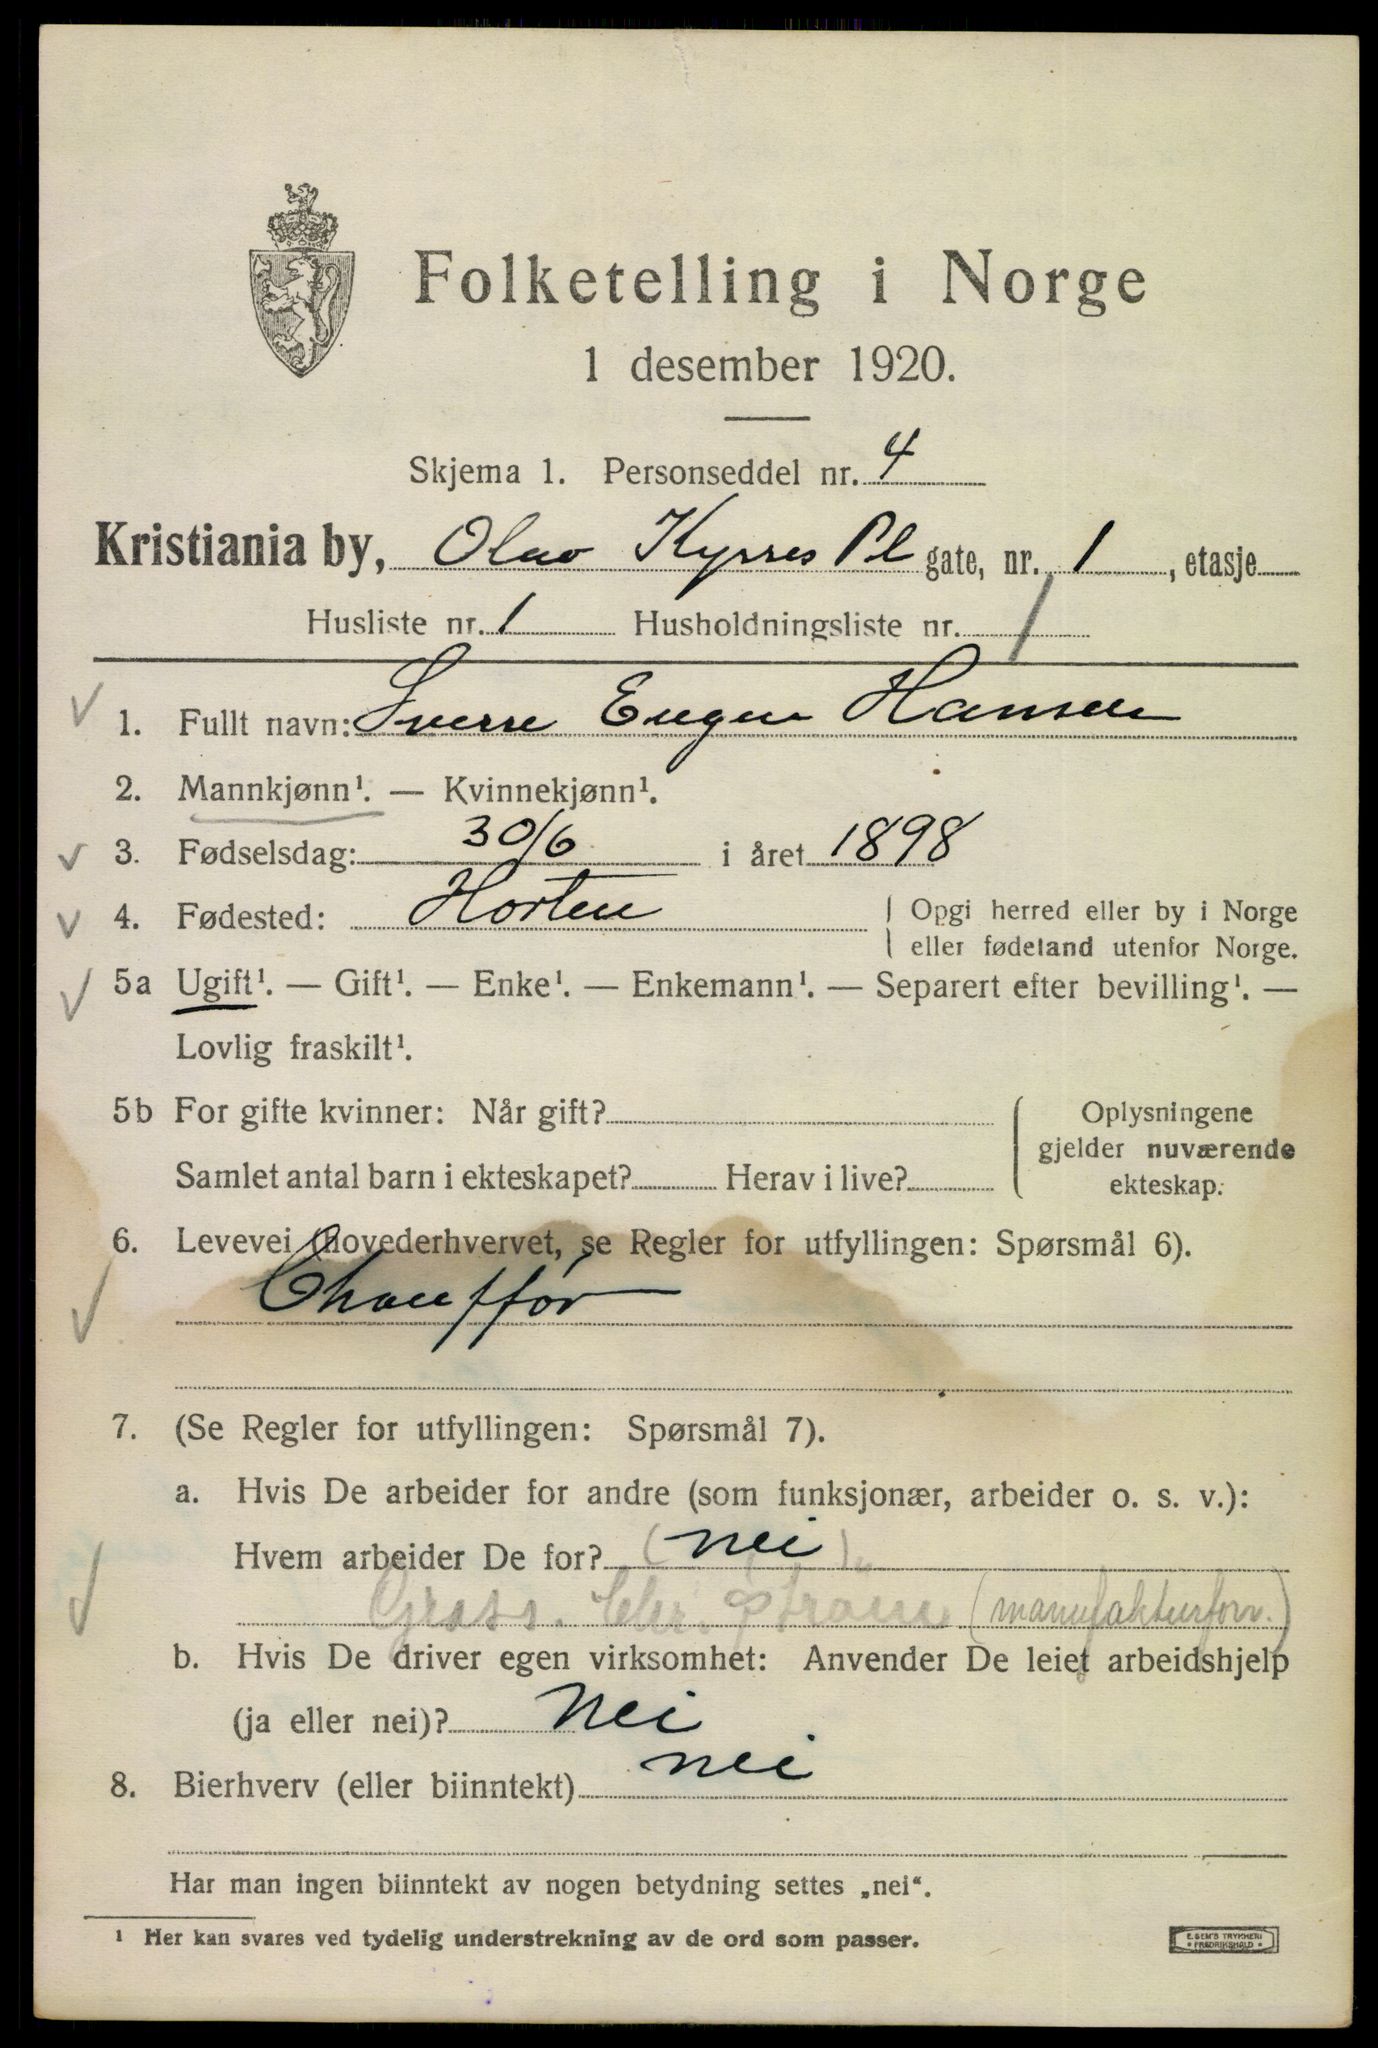 Folketelling i Norge
1 desember 1920.
Skjema 1. Personseddel nr. 4
Kristiania by, Olav Kyrres Pl gate, nr. 1, etasje
Husliste nr. 1 Husholdningsliste nr. 1
1. Fullt navn: Sverre Eugen Hansen
2. Mannkjønn¹. — Kvinnekjønn¹.
3. Fødselsdag: 30/6 i året 1898
4. Fødested: Horten
Opgi herred eller by i Norge
eller fødeland utenfor Norge.
5a Ugift¹. — Gift¹. — Enke¹. — Enkemann¹. — Separert efter bevilling¹. —
Lovlig fraskilt¹.
5b For gifte kvinner: Når gift?
Samlet antal barn i ekteskapet? Herav i live?
Oplysningene
gjelder nuværende
ekteskap.
6. Levevei (hovederhvervet, se Regler for utfyllingen: Spørsmål 6).
Chauffør
7. (Se Regler for utfyllingen: Spørsmål 7).
a. Hvis De arbeider for andre (som funksjonær, arbeider o. s. v.):
Hvem arbeider De for? (nei)
Gross. Chr. Strøm (manufakturforr.)
b. Hvis De driver egen virksomhet: Anvender De leiet arbeidshjelp
(ja eller nei)? Nei
8. Bierhverv (eller biinntekt) nei
Har man ingen biinntekt av nogen betydning settes „nei“.
¹ Her kan svares ved tydelig understrekning av de ord som passer.
E. SEM'S TRYKKERI
• FREDRIKSHALD •